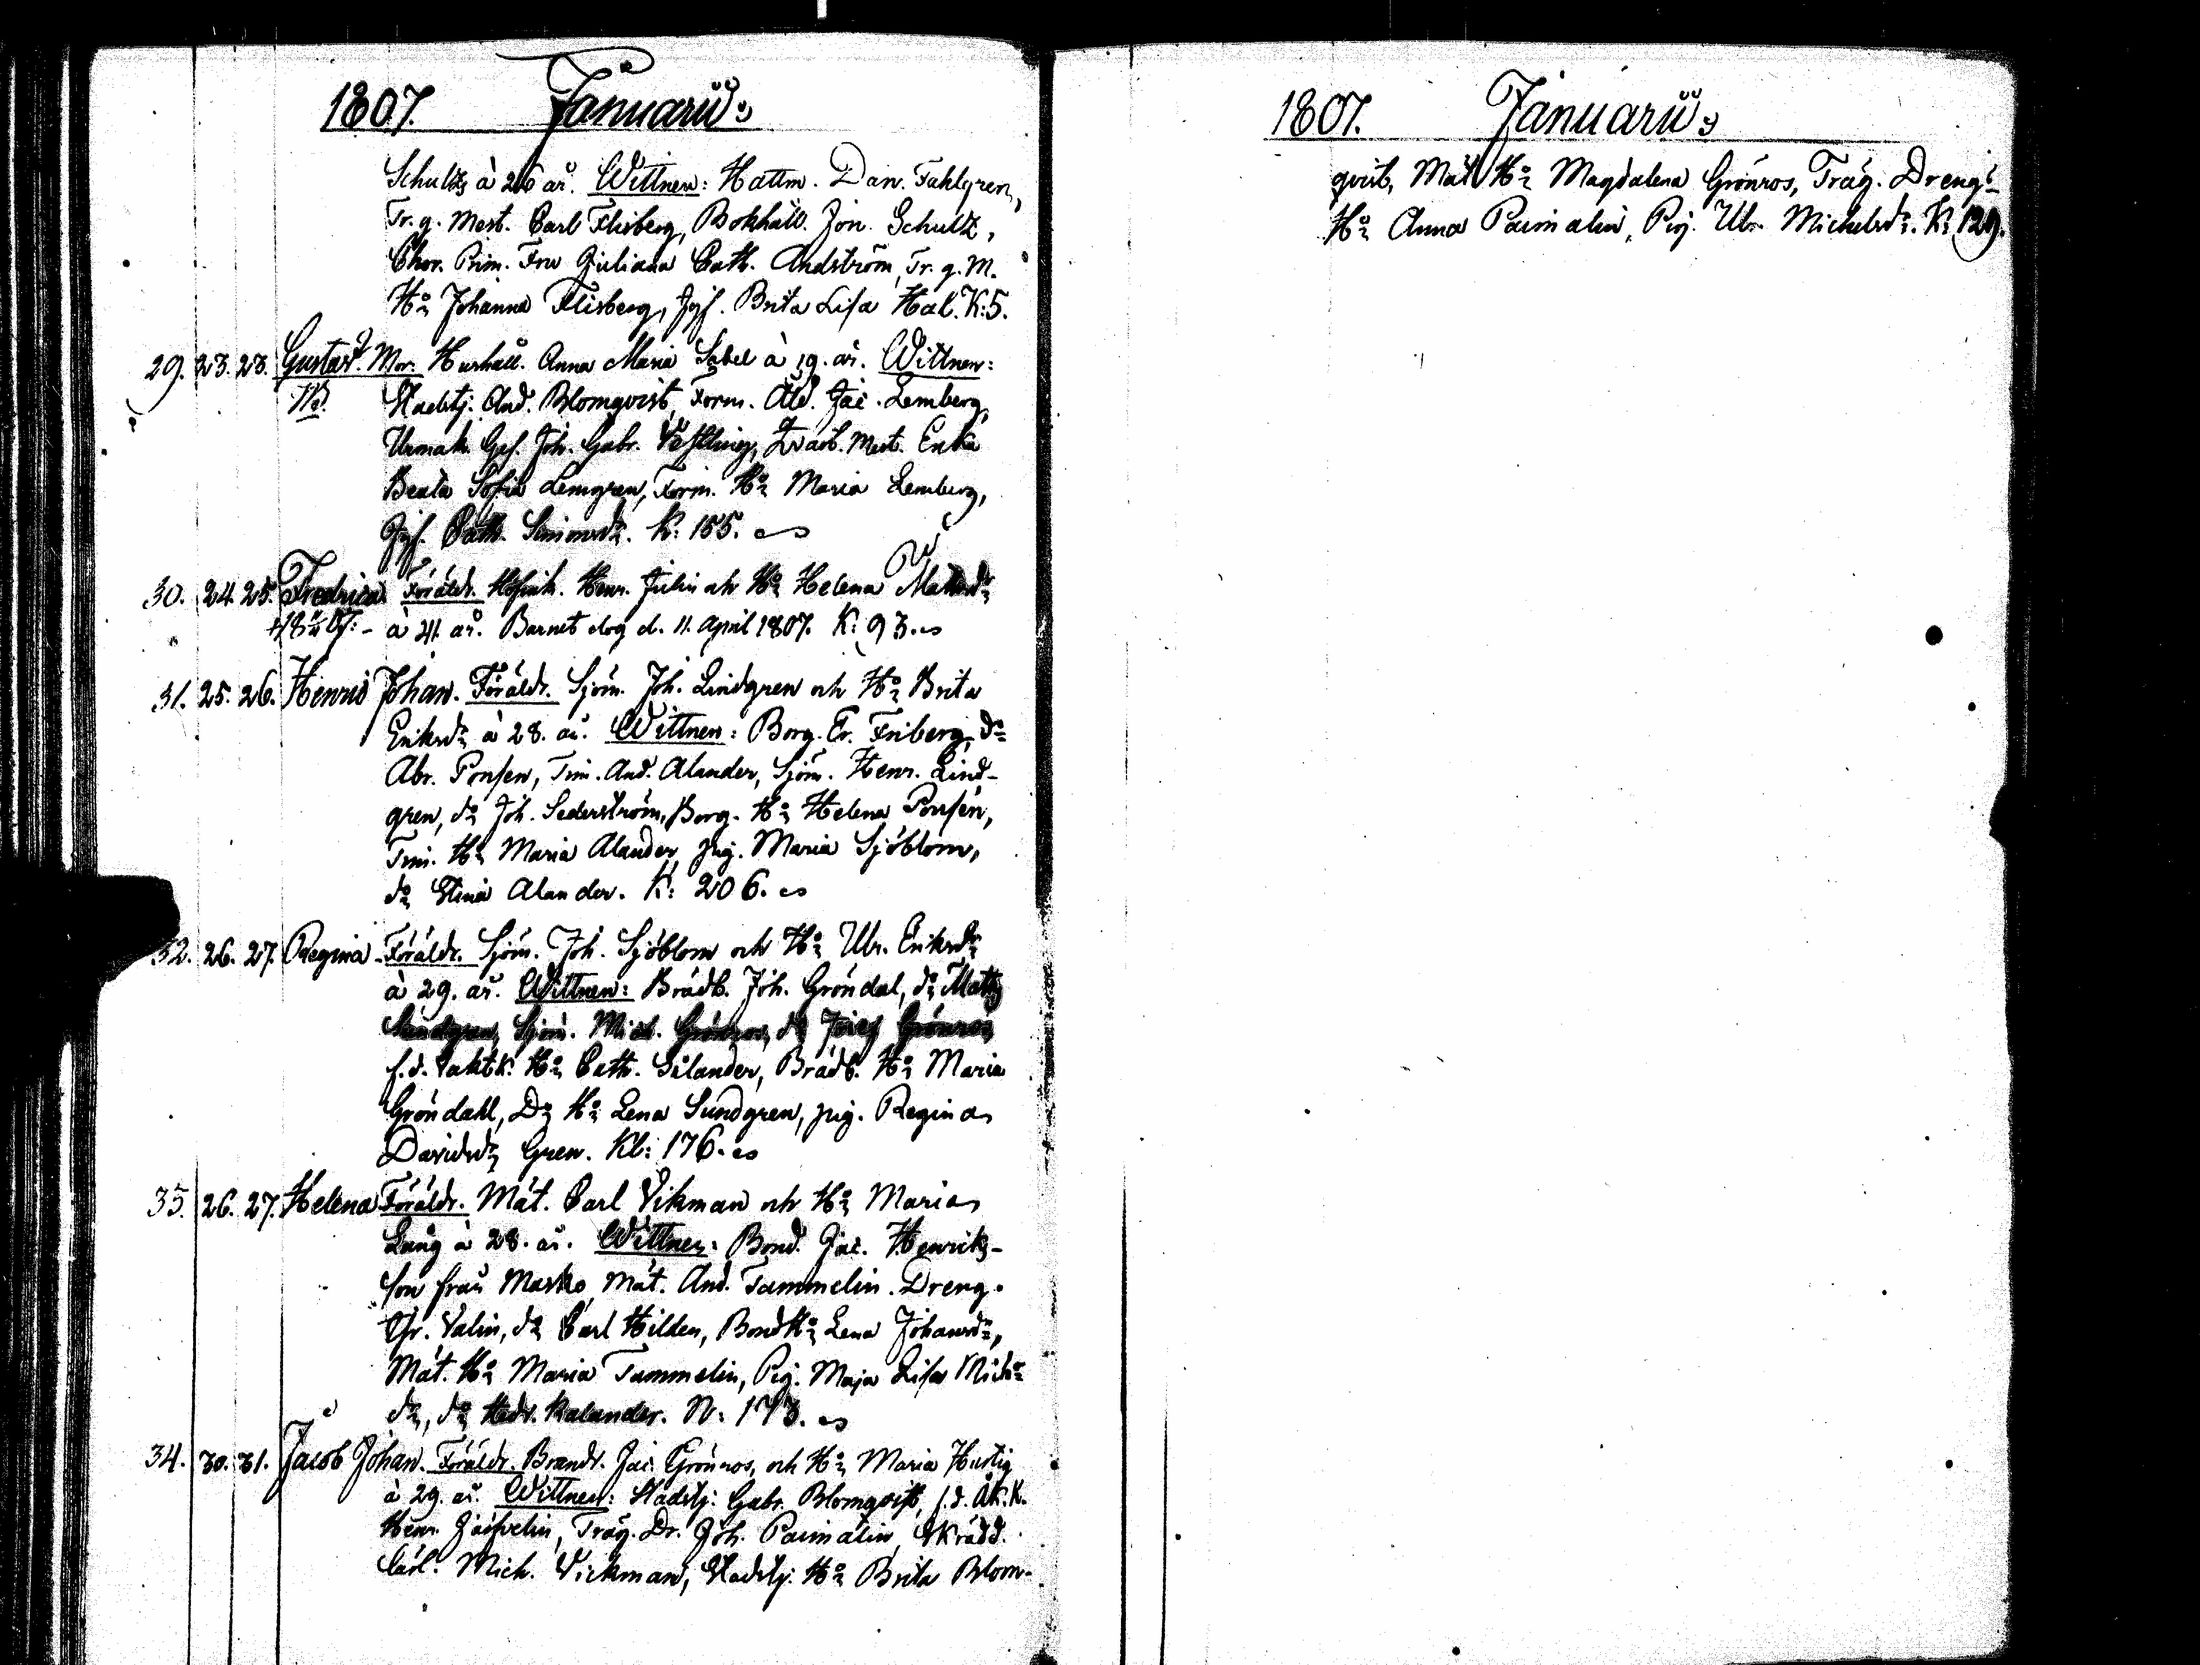 1807. Januarii:
Schultz à 26 år. Wittnen: Hattm. Dan. Fahlgren,
Tr. g. Mest. Carl Flisberg, Bokhåll. Jon. Schultz,
Chor. Prim. Fru Juliana Cath. Andström, Tr. g. M.
Ho Johanna Flisberg, Jgf. Brita Lisa Hal. K: 5.
29. 23. 23. Gustaf. Mor. Hushåll. Anna Maria Sabel à 19. år. Wittnen:
Stadstj. And. Blomqvist, Form. Åld. Jac. Lemberg,
Urmak. Ges. Joh. Gabr. Mest. Enka
Beata Sofia Lemgren, Form. Ho Maria Lemberg,
Jgf. Cath. Simonsdr. K: 155.
30. 24. 25. Fredrica Föräldr. Henr. Julin och Ho Helena Mattsdr
à 41. år. Barnet dog d. 11. April 1807. K: 93.
31. 25. 26. Henric Johan. Föräldr. Sjöm. Joh. Lindgren och Ho Brita
Eriksdr à 28. år. Wittnen: Borg. Er. Friberg, do
Abr. Ponsen, Tim. And. Alander, Sjöm. Henr. Lind-
gren, do Joh. Sederström, Borg. Ho Helena Ponsén,
Tim. Ho Maria Alander, pig. Maria Sjöblom,
do Stina Alander. K: 206.
32. 26. 27. Regina Föräldr. Sjöm. Joh. Sjöblom och Ho Ulr. Eriksdr
à 29. år. Wittnen: Brädb. Joh. Gröndal, do Matts
Sundgren, Sjöm. Mich. Grönros, do Grönros
f. d. Vaktk. Ho Cath. Silander, Brädb. Ho Maria
Gröndahl, Do Ho Lena Sundgren, pig. Regina
Davidsdr Gren. Kl: 176.
33. 26. 27. Helena Föräldr. Mät. Carl Vikman och Ho Maria
Lang à 28. år. Wittnen: Bond. Jac. Henriks-
son från Masko, Mät. And. Tammelin. Dreng.
Gr. Valin, do Carl Hilden, Bond Ho Lena Johansdr,
Mät. Ho Maria Tammelin, Pig. Maja Lisa Mich-
dr, do Hedv. Kalander. N: 173.
34. 30. 31. Jacob Johan. Föräldr. Brandv. Jac. Grönros, och Ho Maria Hurtig
à 29. år. Wittnen: Stadstj: Gabr. Blomqvist, f. d. Åk. K.
Henr. Träg. Dr. Joh. Paimalin, Skrädd.
Mich. Vickman, Stadstj: Ho Brita Blom-
1807. Januarii:
qvist, Mät Ho Magdalena Grönros, Träg. Dreng:
Ho Anna Paimalin, Pig. Ulr. Michelsdr. K: 129.